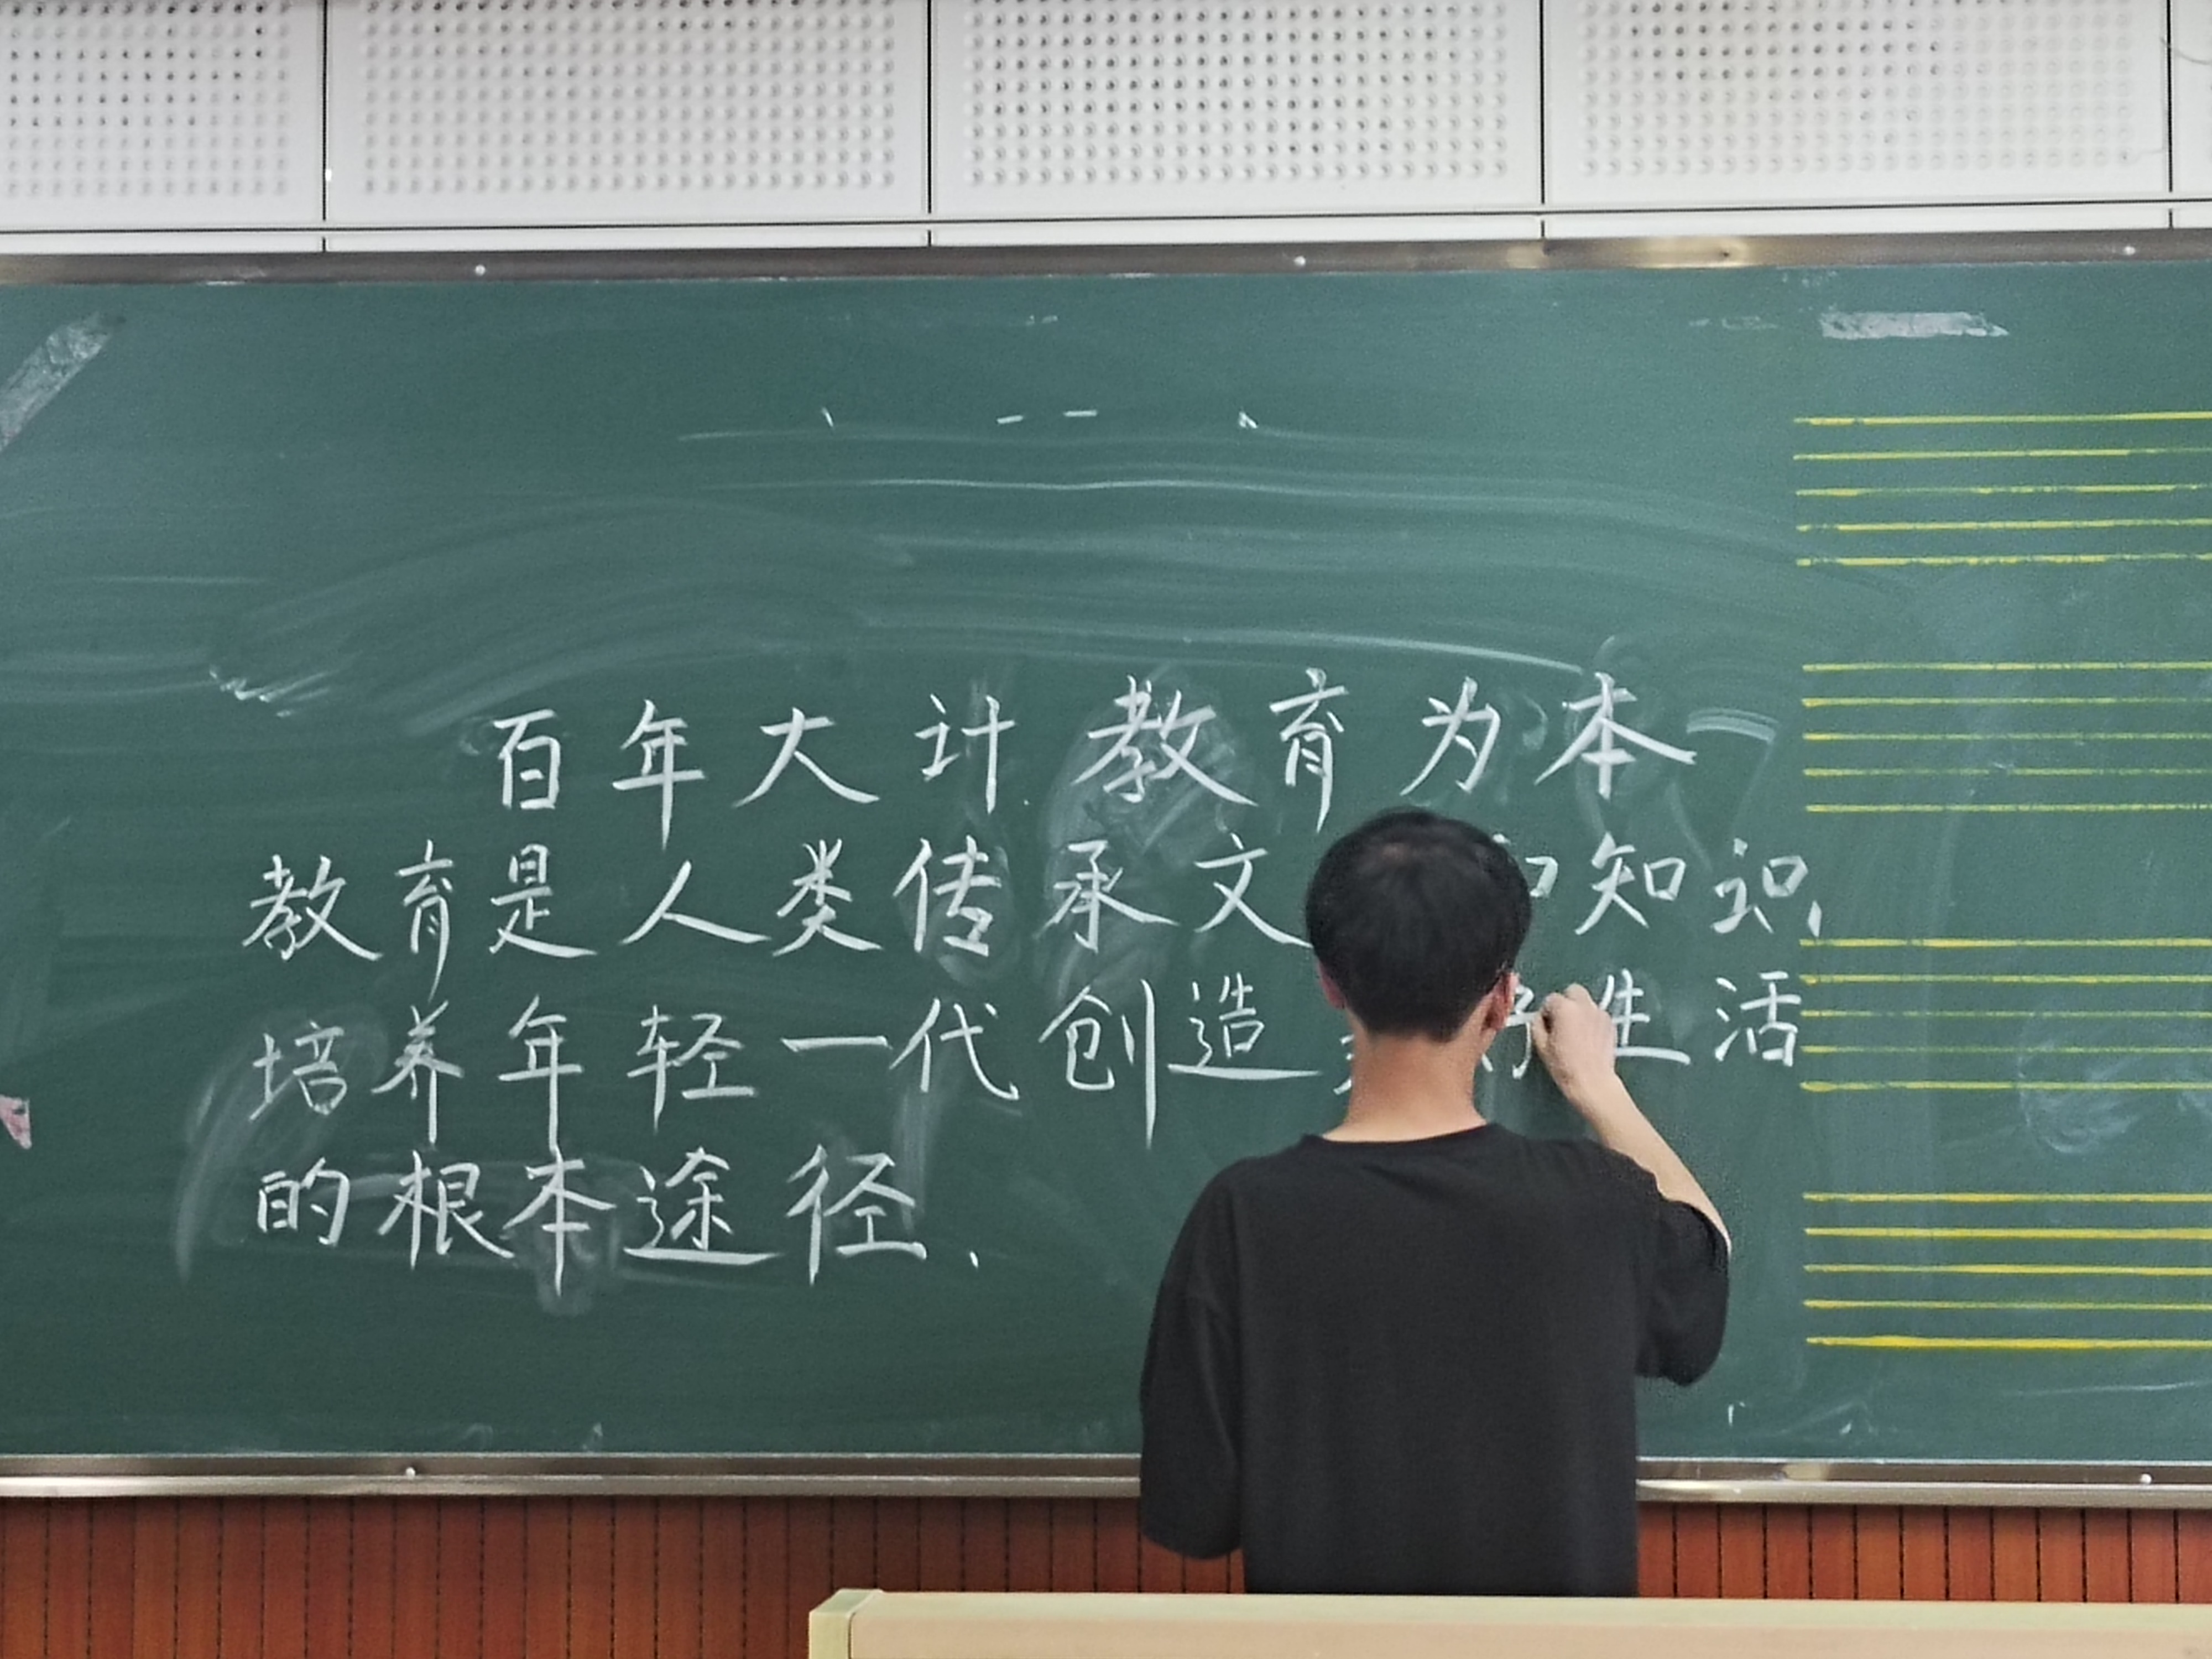 百年大计教育为本
教育是人类传承文 知识,
培养年轻一代创造 生活
的根本途径.